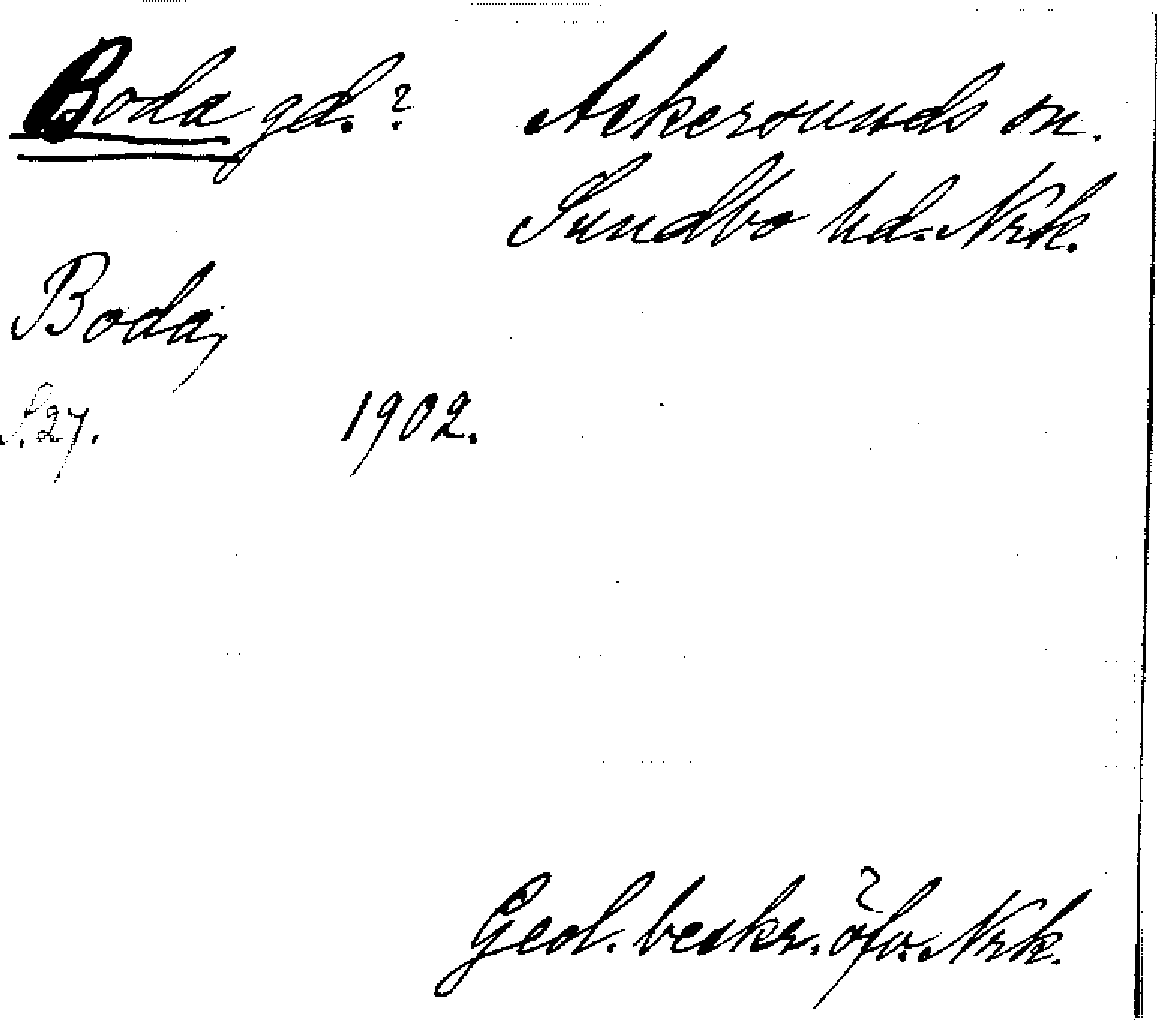 Boda gd.? Askersunds sn.
Sundbo hd. Nrk.
Boda,
S. 27. 1902.
Geol. beskr. öfv. Nrk.